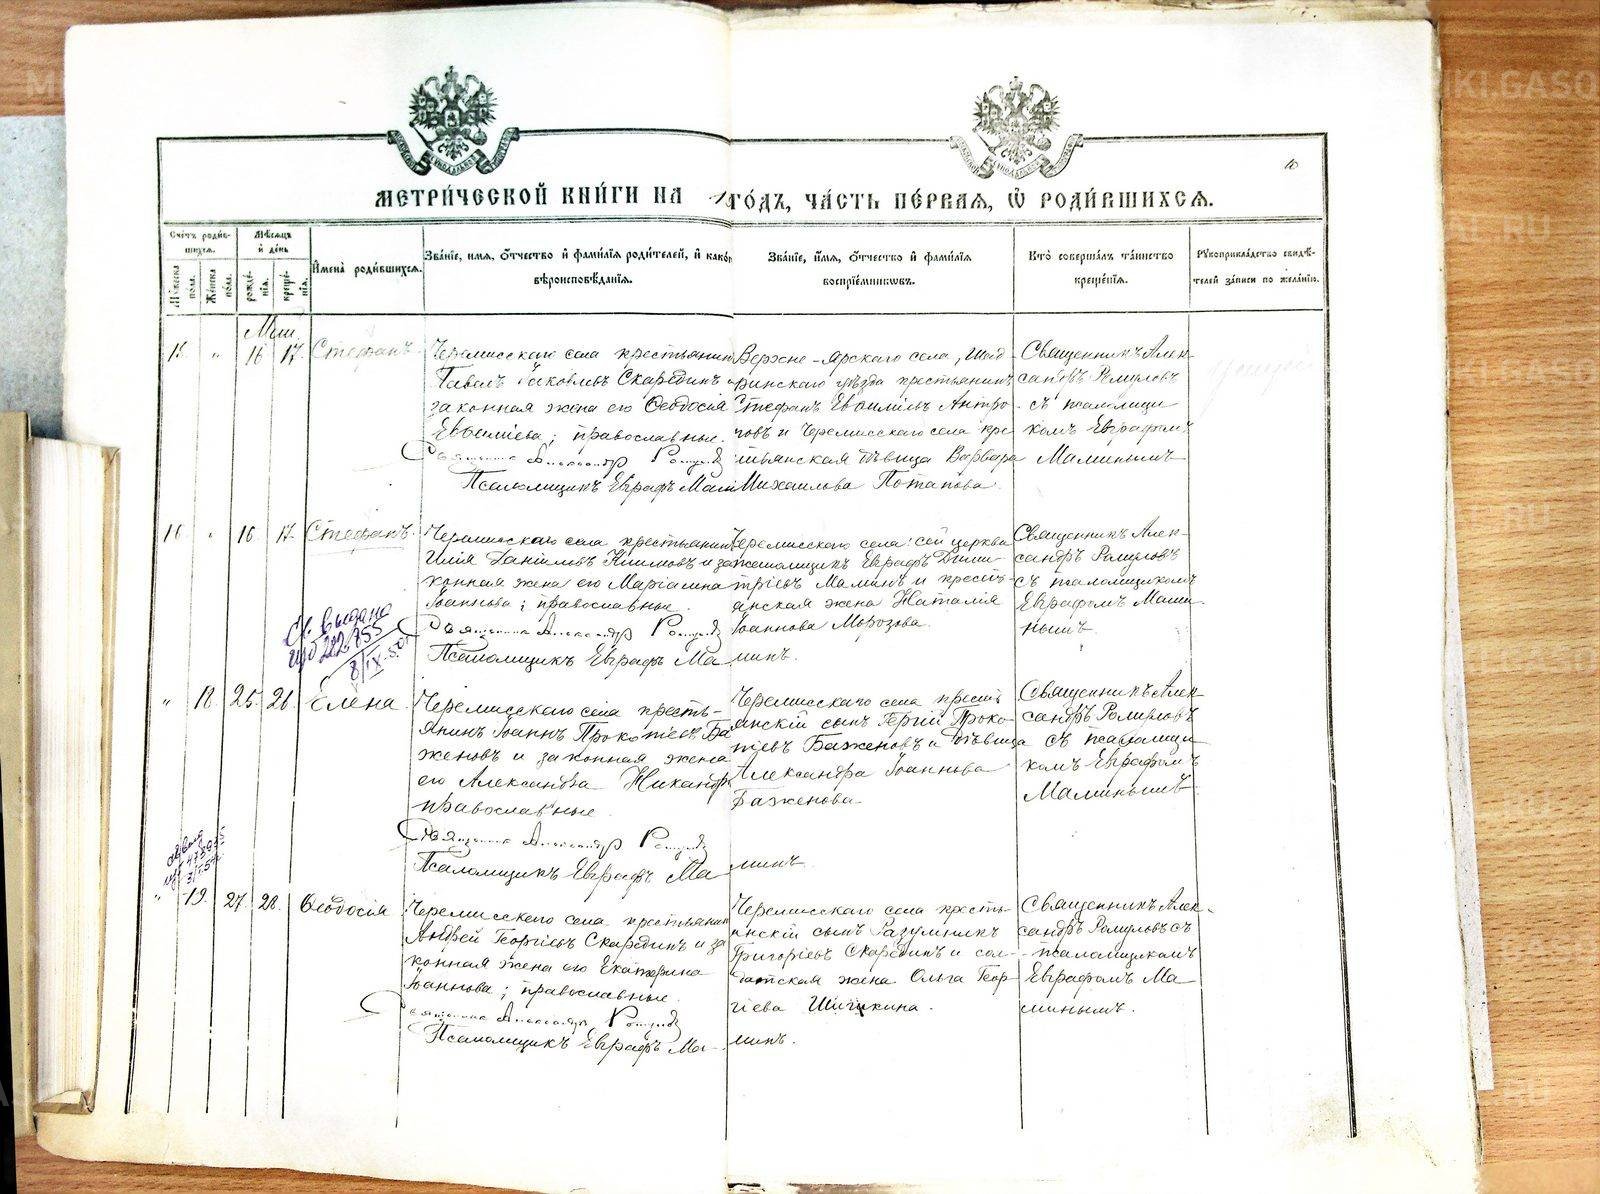 10
МЕТРИ́ЧЕСКОЙ КНИ́ГИ НА ГО́ДЪ, ЧА́СТЬ ПЕ́РВАЯ, Ѡ РОДИ́ВШИХСЯ.
Сче́тъ роди́в-
шихся.
Му́жеска по́ла.
Же́нска по́ла.
Мѣ́сяцъ
и де́нь
рожде́-
нія.
креще́-
нія.
Имена̀ роди́вшихся.
Зва́ніе, имя, о́тчество и фами́лія роди́телей, и како́г
вѣроисповѣ́данія.
Зва́ніе, и́мя, о́тчество и фами́лія
воспріе́мниковъ.
Кто̀ соверша́лъ та́инство
креще́нія.
Рукоприкла́дство свидѣ́-
телей за́писи по жела́нію.
Маи.
15 " 16 17. Стефанъ.
Черемисскаго села крестьянин
Павелъ Іаковлевъ Скарединъ и
законная жена его Ѳеодосія
Евсиміева; православные.
Священникъ Александръ Ромулов
Псаломщикъ Евграфъ Мами
Верхне-Ярскаго села, Шад-
ринскаго уѣзда крестьянинъ
Стефанъ Евсиміевъ Антро-
повъ и Черемисскаго села кре
стьянская дѣвица Варвара
Михаилова Потапова.
Священникъ Алек-
сандръ Ромуловъ
съ псаломщи
комъ Евграфомъ
Маминымъ
16 " 16. 17. Стефанъ.
Черемисскаго села крестьянин
Илія Даніиловъ Климовъ и за
конная жена его Маріамна
Іоаннова; православные.
Священникъ Александръ Ромулов
Псаломщикъ Евграфъ Ма
минъ.
Черемисскаго села: сей церкви
псаломщикъ Евграфъ Дими-
тріевъ Маминъ и кресть-
янская жена Наталія
Іоаннова Морозова.
Священникъ Алек-
сандръ Ромуловъ
съ псаломщикомъ
Евграфомъ Мами-
нымъ.
Св. выдана
222855
8/IX-50
" 18. 25. 26. Елена.
Черемисскаго села кресть-
янинъ Іоаннъ Прокопіевъ Ба
женовъ и законная жена
его Александра Никандр
православные.
Священникъ Александръ Ромулов
Псаломщикъ Евграфъ Ма
минъ.
Черемисскаго села кресть
янскій сынъ Георгій Проко-
піевъ Баженовъ и дѣвица
Александра Іоаннова
Баженова
Священникъ Алек-
сандръ Ромуловъ
съ псаломщи
комъ Евграфомъ
Маминымъ.
" 19. 27. 28. Ѳеодосія
Черемисскаго села крестьянин
Андрей Георгіевъ Скарединъ и за
конная жена его Екатерина
Іоаннова; православные.
Священникъ Александръ Ромулов
Псаломщикъ Евграфъ Ма-
минъ.
Черемисскаго села кресть-
янскій сынъ Разумникъ
Григоріевъ Скарединъ и сол-
датская жена Ольга Геор-
гіева Шишкина.
Священникъ Алек-
сандръ Ромуловъ съ
псаломщикомъ
Евграфомъ Ма
минымъ.